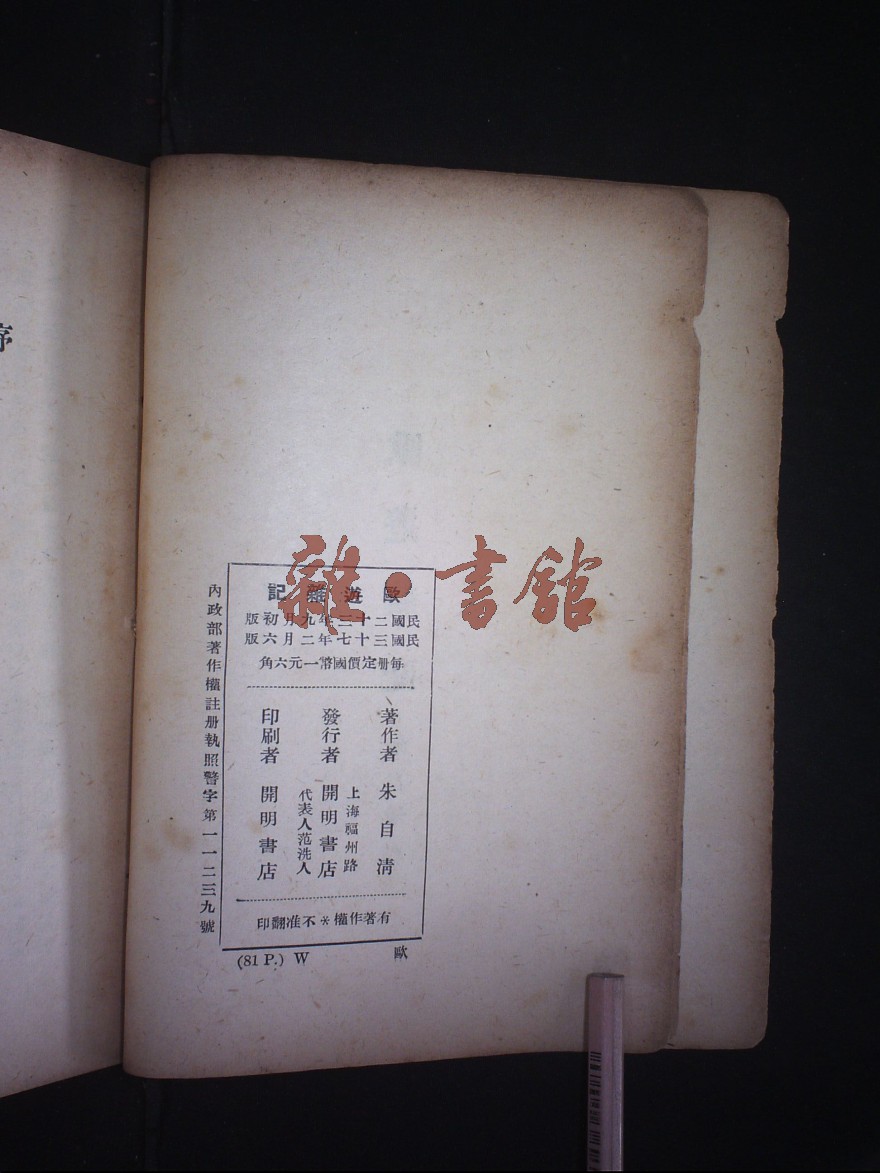 序
雜·書館
歐遊雜記
民國二十三年九月初版
民國三十七年二月六版
每冊定價國幣一元六角
著作者 朱自清
發行者
上海福州路
開明書店
代表人范洗人
印刷者 開明書店
有著作權*不准翻印
內政部著作權註冊執照警字第一一二三九號
(81 P.) W
歐